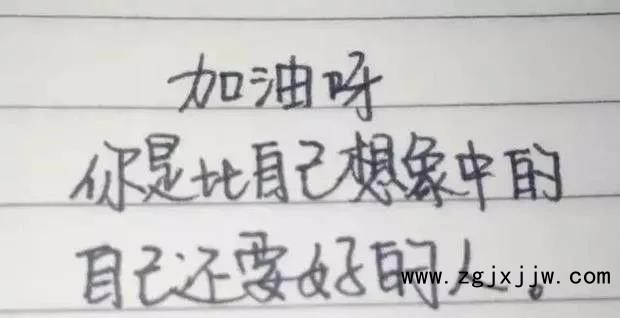 加油呀
你是比自己想象中的
自己还要好的人。
www.zgjxjjw.com